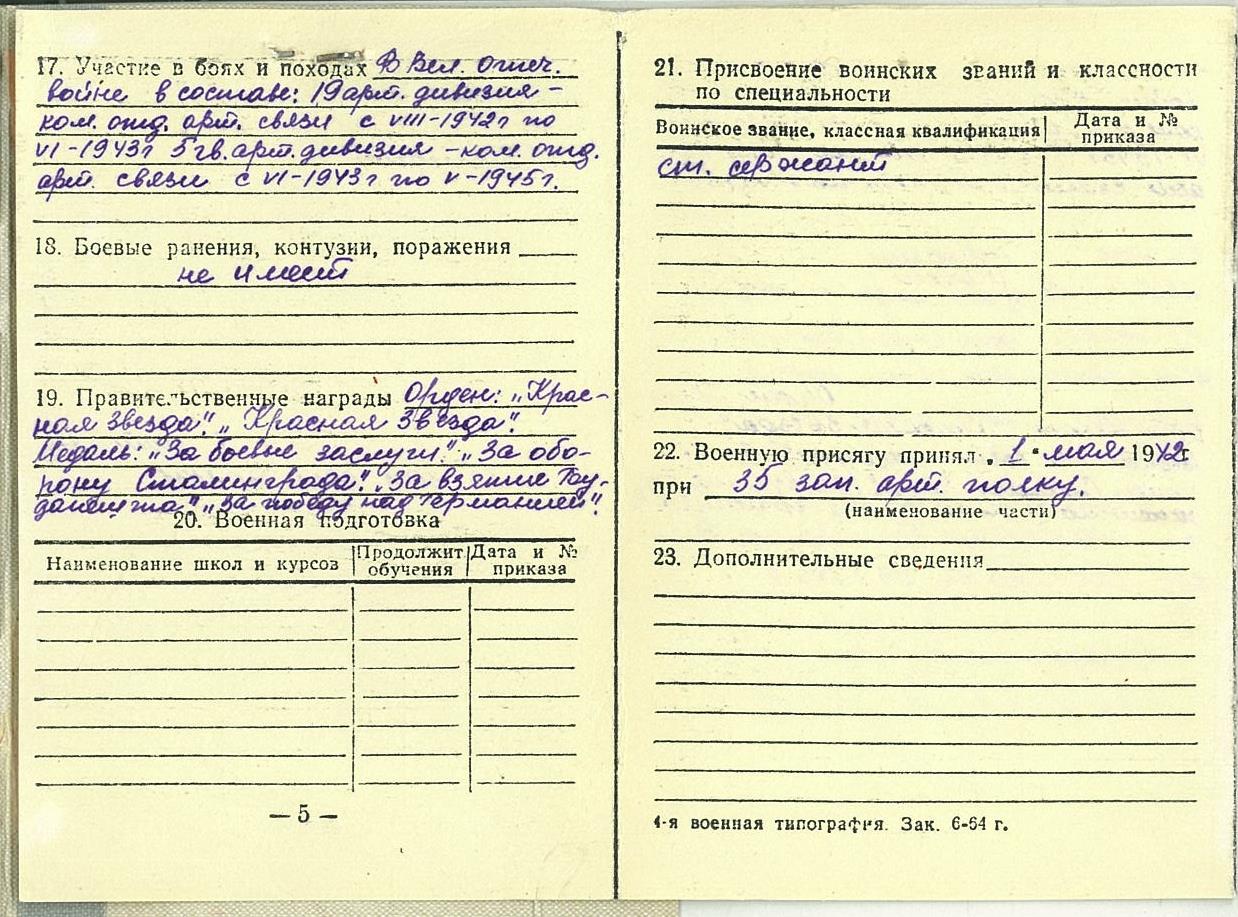 17. Участие в боях и походах В Вел. отеч.
войне в составе: 19 арт. дивизия –
ком. отд. арт. связи с VIII-1942г по
VI-1943г 5 гв. арт. дивизия – ком. отд.
арт. связи с VI-1943г по V-1945г.
18. Боевые ранения, контузии, поражения
не имеет
19. Правительственные награды Орден: „Крас-
ная Звезда". „Красная Звезда".
Медаль: „За боевые заслуги". „За обо-
рону Сталинграда". „За взятие Бу-
дапешта". „За победу над Германией".
20. Военная подготовка
Наименование школ и курсов
Продолжит обучения
Дата и № приказа
— 5 —
21. Присвоение воинских званий и классности
по специальности
Воинское звание, классная квалификация
Дата и № приказа
ст. сержант
22. Военную присягу принял „ 1 " мая 1942г
при 35 зап. арт. полку.
(наименование части)
23. Дополнительные сведения
4-я военная типография. Зак. 6-64 г.